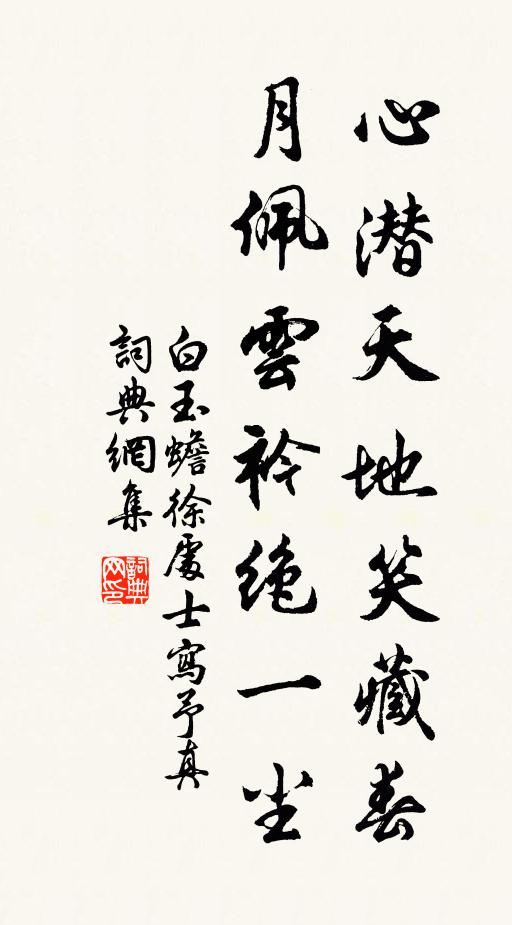 心潜天地笑藏春
月佩雲衿绝一尘
白玉蟾徐處士寫予真
詞典網集
詞典网印